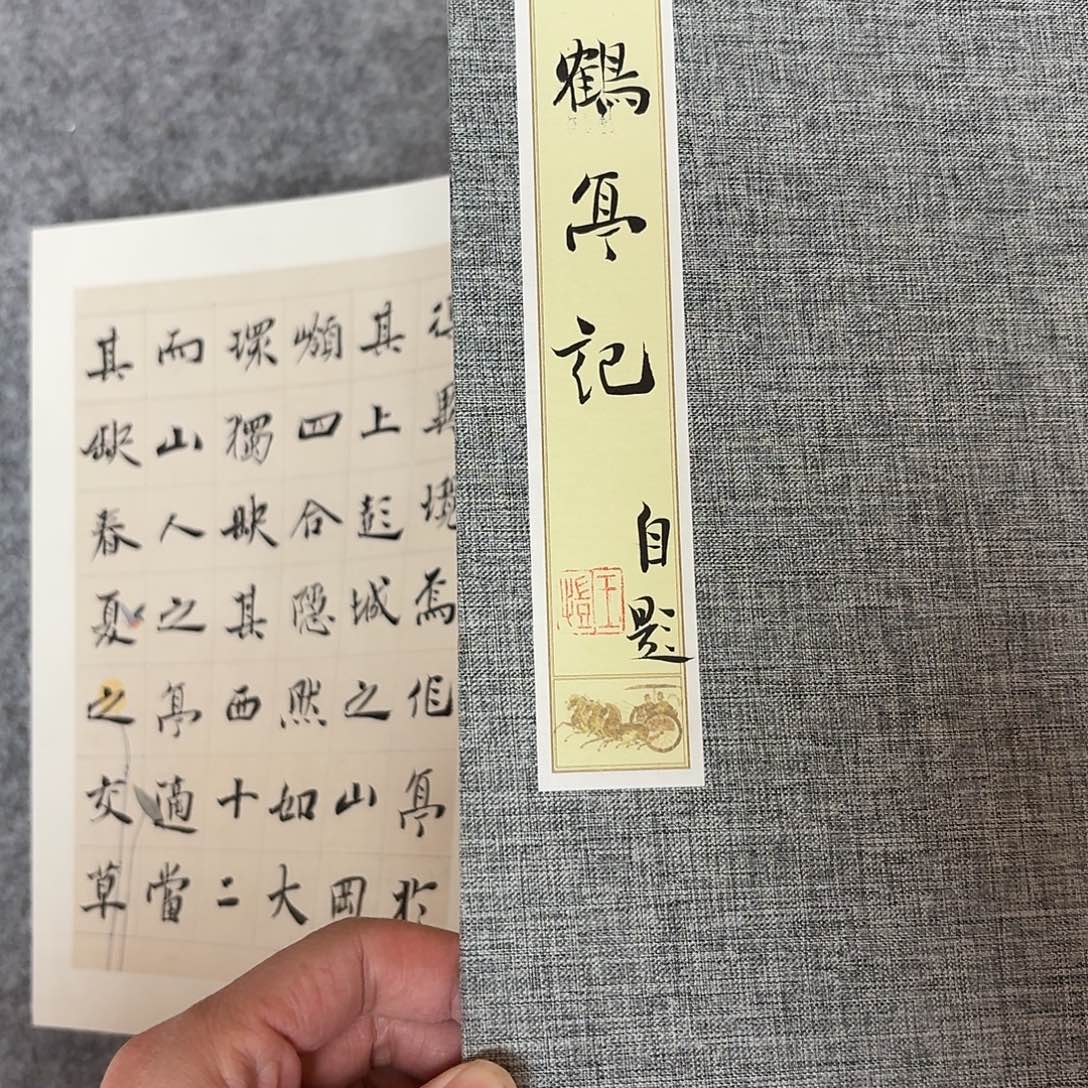 鶴亭記
自題
異境焉作亭於
其上彭城之山岡
嶺四合隱然如大
環獨缺其西十二
而山人之亭適當
其缺春夏之交草